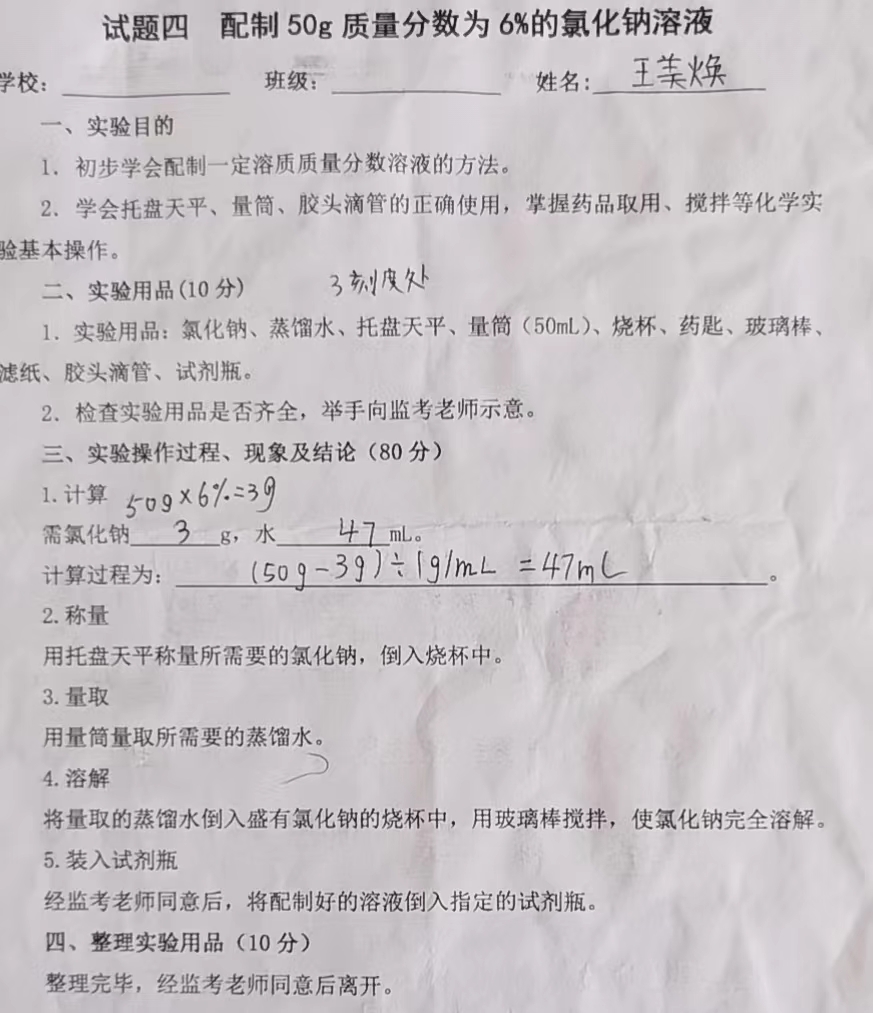 试题四 配制 50g 质量分数为 6%的氯化钠溶液
学校: 班级: 姓名: 王美焕
一、实验目的
1. 初步学会配制一定溶质质量分数溶液的方法。
2. 学会托盘天平、量筒、胶头滴管的正确使用，掌握药品取用、搅拌等化学实
验基本操作。
二、实验用品(10 分) 3刻度处
1. 实验用品：氯化钠、蒸馏水、托盘天平、量筒（50mL）、烧杯、药匙、玻璃棒、
滤纸、胶头滴管、试剂瓶。
2. 检查实验用品是否齐全，举手向监考老师示意。
三、实验操作过程、现象及结论（80 分）
1. 计算 50g×6%=3g
需氯化钠 3 g，水 47 mL。
计算过程为： (50g-3g)÷1g/mL =47mL 。
2. 称量
用托盘天平称量所需要的氯化钠，倒入烧杯中。
3. 量取
用量筒量取所需要的蒸馏水。
4. 溶解
将量取的蒸馏水倒入盛有氯化钠的烧杯中，用玻璃棒搅拌，使氯化钠完全溶解。
5. 装入试剂瓶
经监考老师同意后，将配制好的溶液倒入指定的试剂瓶。
四、整理实验用品（10 分）
整理完毕，经监考老师同意后离开。